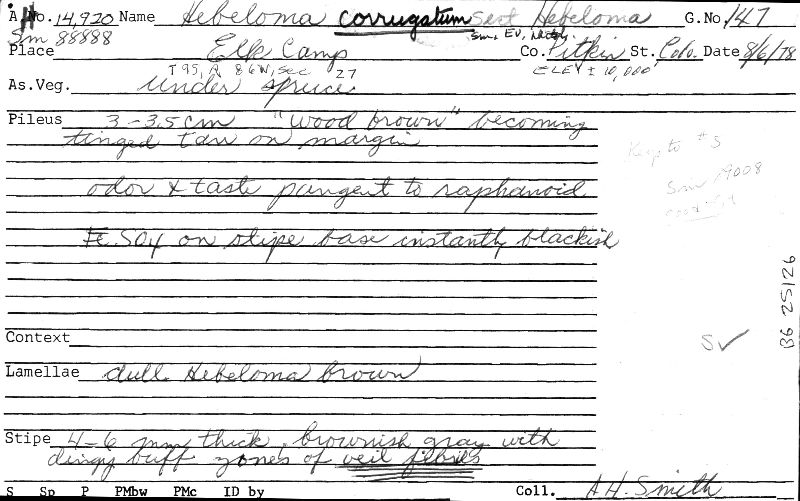 AH No. 14,920 Name Hebeloma corrugatum Sect Hebeloma G.No. 147
Sm 88888 Sm, EV,
Place Elk Camp Co. Pitkin St. Colo. Date 8/6/78
T 9S, R 86W, Sec 27 ELEV ± 10,000'
As.Veg. under spruce
Pileus 3-3.5 cm "wood brown" becoming
tinged tan on margin
Key to #5
odor & taste pungent to raphanoid
Sm 19008
Fe SO4 on stipe base instantly blackish
BG 25/26
Context
S✓
Lamellae dull Hebeloma brown
Stipe 4-6 mm thick, brownish gray with
dingy buff zones of veil fibrils
S Sp P PMbw PMc ID by Coll. AH Smith